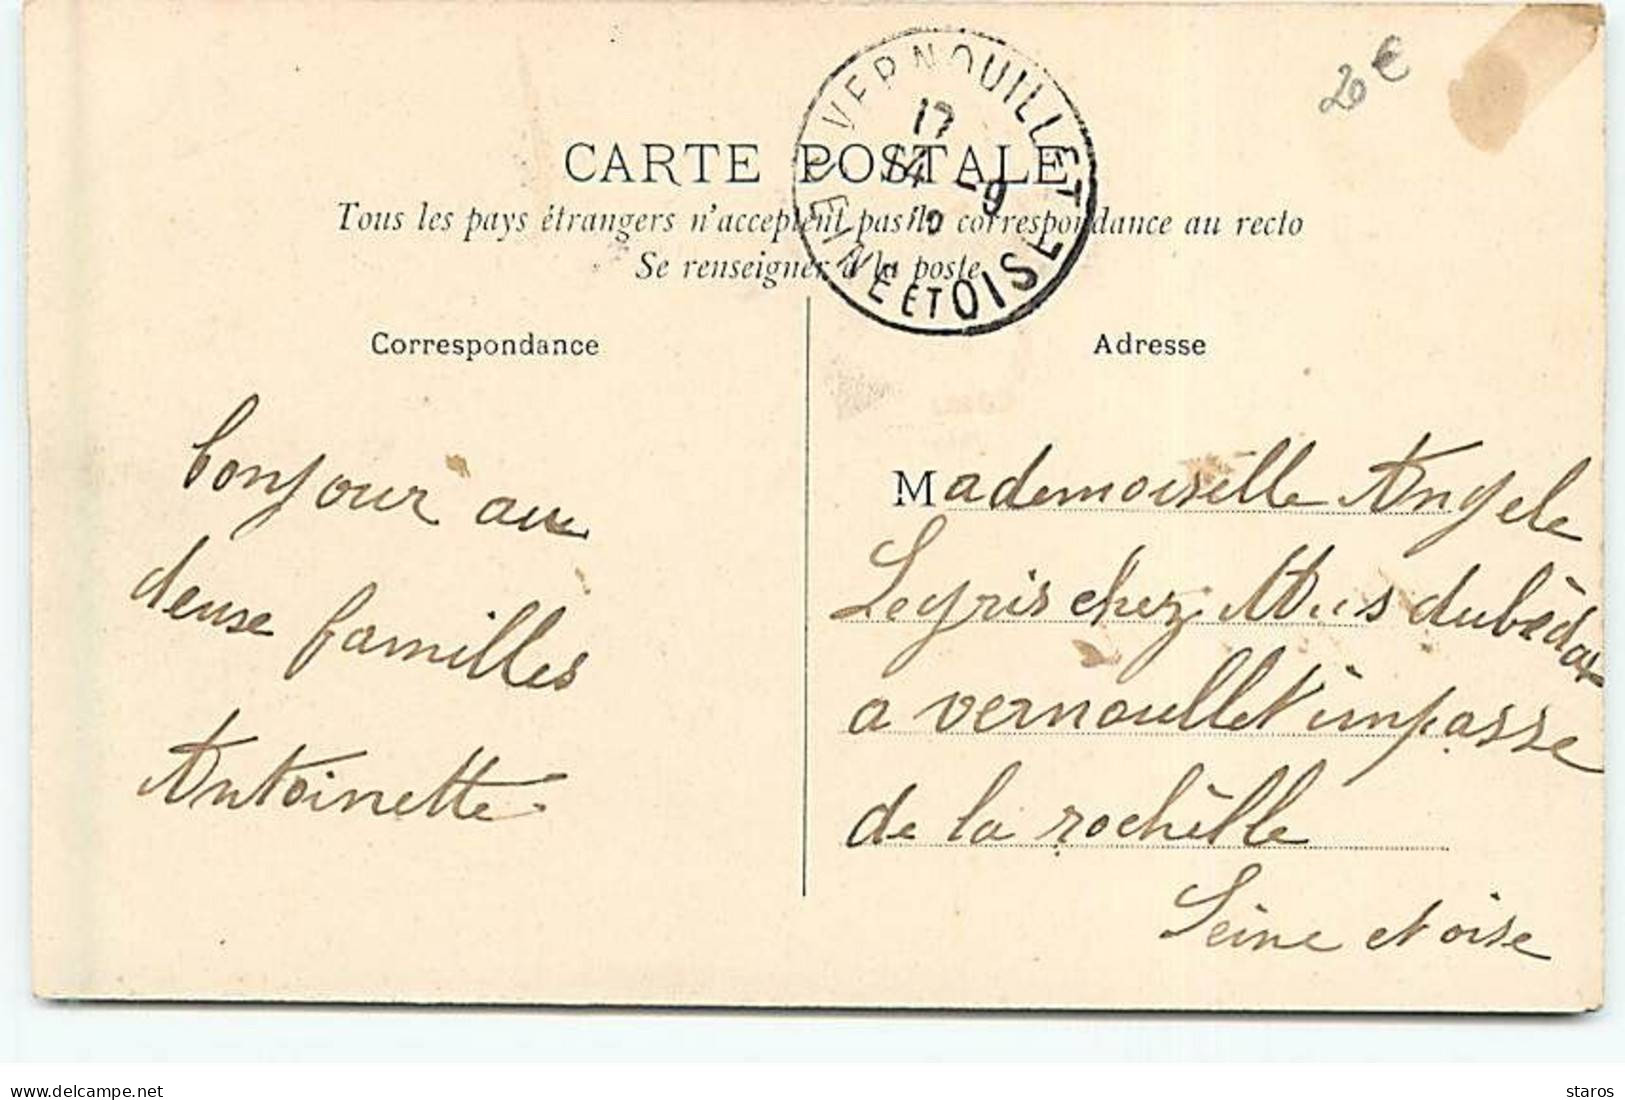 20 €
VERNOUILLET
17
14 -9
SEINE ET OISE
CARTE POSTALE
Tous les pays étrangers n'acceptent pas la correspondance au recto
Se renseigner à la poste
Correspondance
Adresse
bonjour au
deuse familles
Antoinette
Mademoiselle Angele
Legris chez
a vernouillet impasse
de la rochelle
Seine et oise
www.delcampe.net
staros